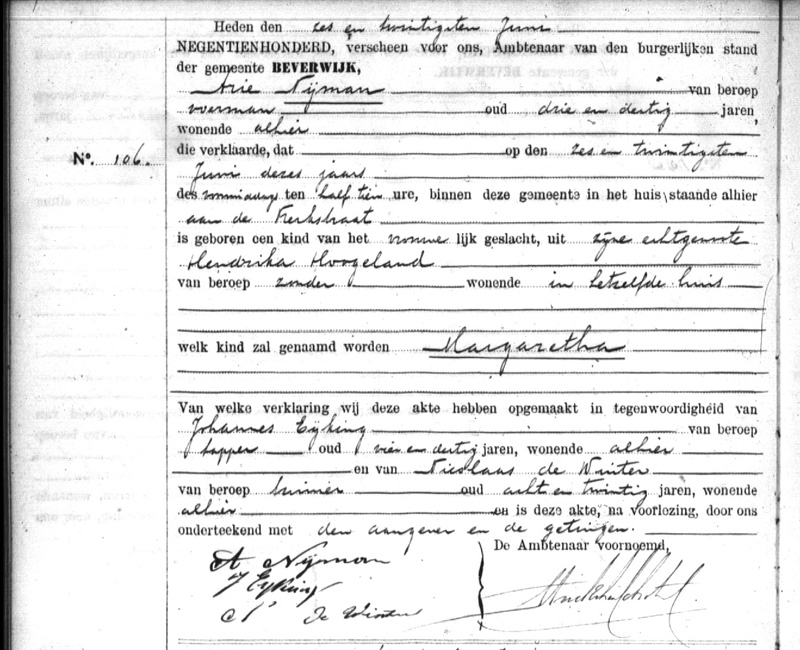 Heden den zes en twintigsten Juni
NEGENTIENHONDERD, verscheen voor ons, Ambtenaar van den burgerlijken stand
der gemeente BEVERWIJK,
Arie Nijman van beroep
voerman oud drie en dertig jaren,
wonende alhier
N°. 106. die verklaarde, dat op den zes en twintigsten
Juni dezes jaars
des voormiddags ten half tien ure, binnen deze gemeente in het huis staande alhier
aan de Kerkstraat
is geboren een kind van het vrouwelijk geslacht, uit zijne echtgenoote
Hendrika Hoogeland
van beroep zonder wonende in hetzelfde huis
welk kind zal genaamd worden Margaretha
Van welke verklaring wij deze akte hebben opgemaakt in tegenwoordigheid van
Johannes Eyking van beroep
tapper oud vier en dertig jaren, wonende alhier
en van Nicolaas de Winter
van beroep tuinier oud acht en twintig jaren, wonende
alhier en is deze akte, na voorlezing, door ons
onderteekend met den aangever en de getuigen.
De Ambtenaar voornoemd,
A Nijman
J Eyking
N de Winter